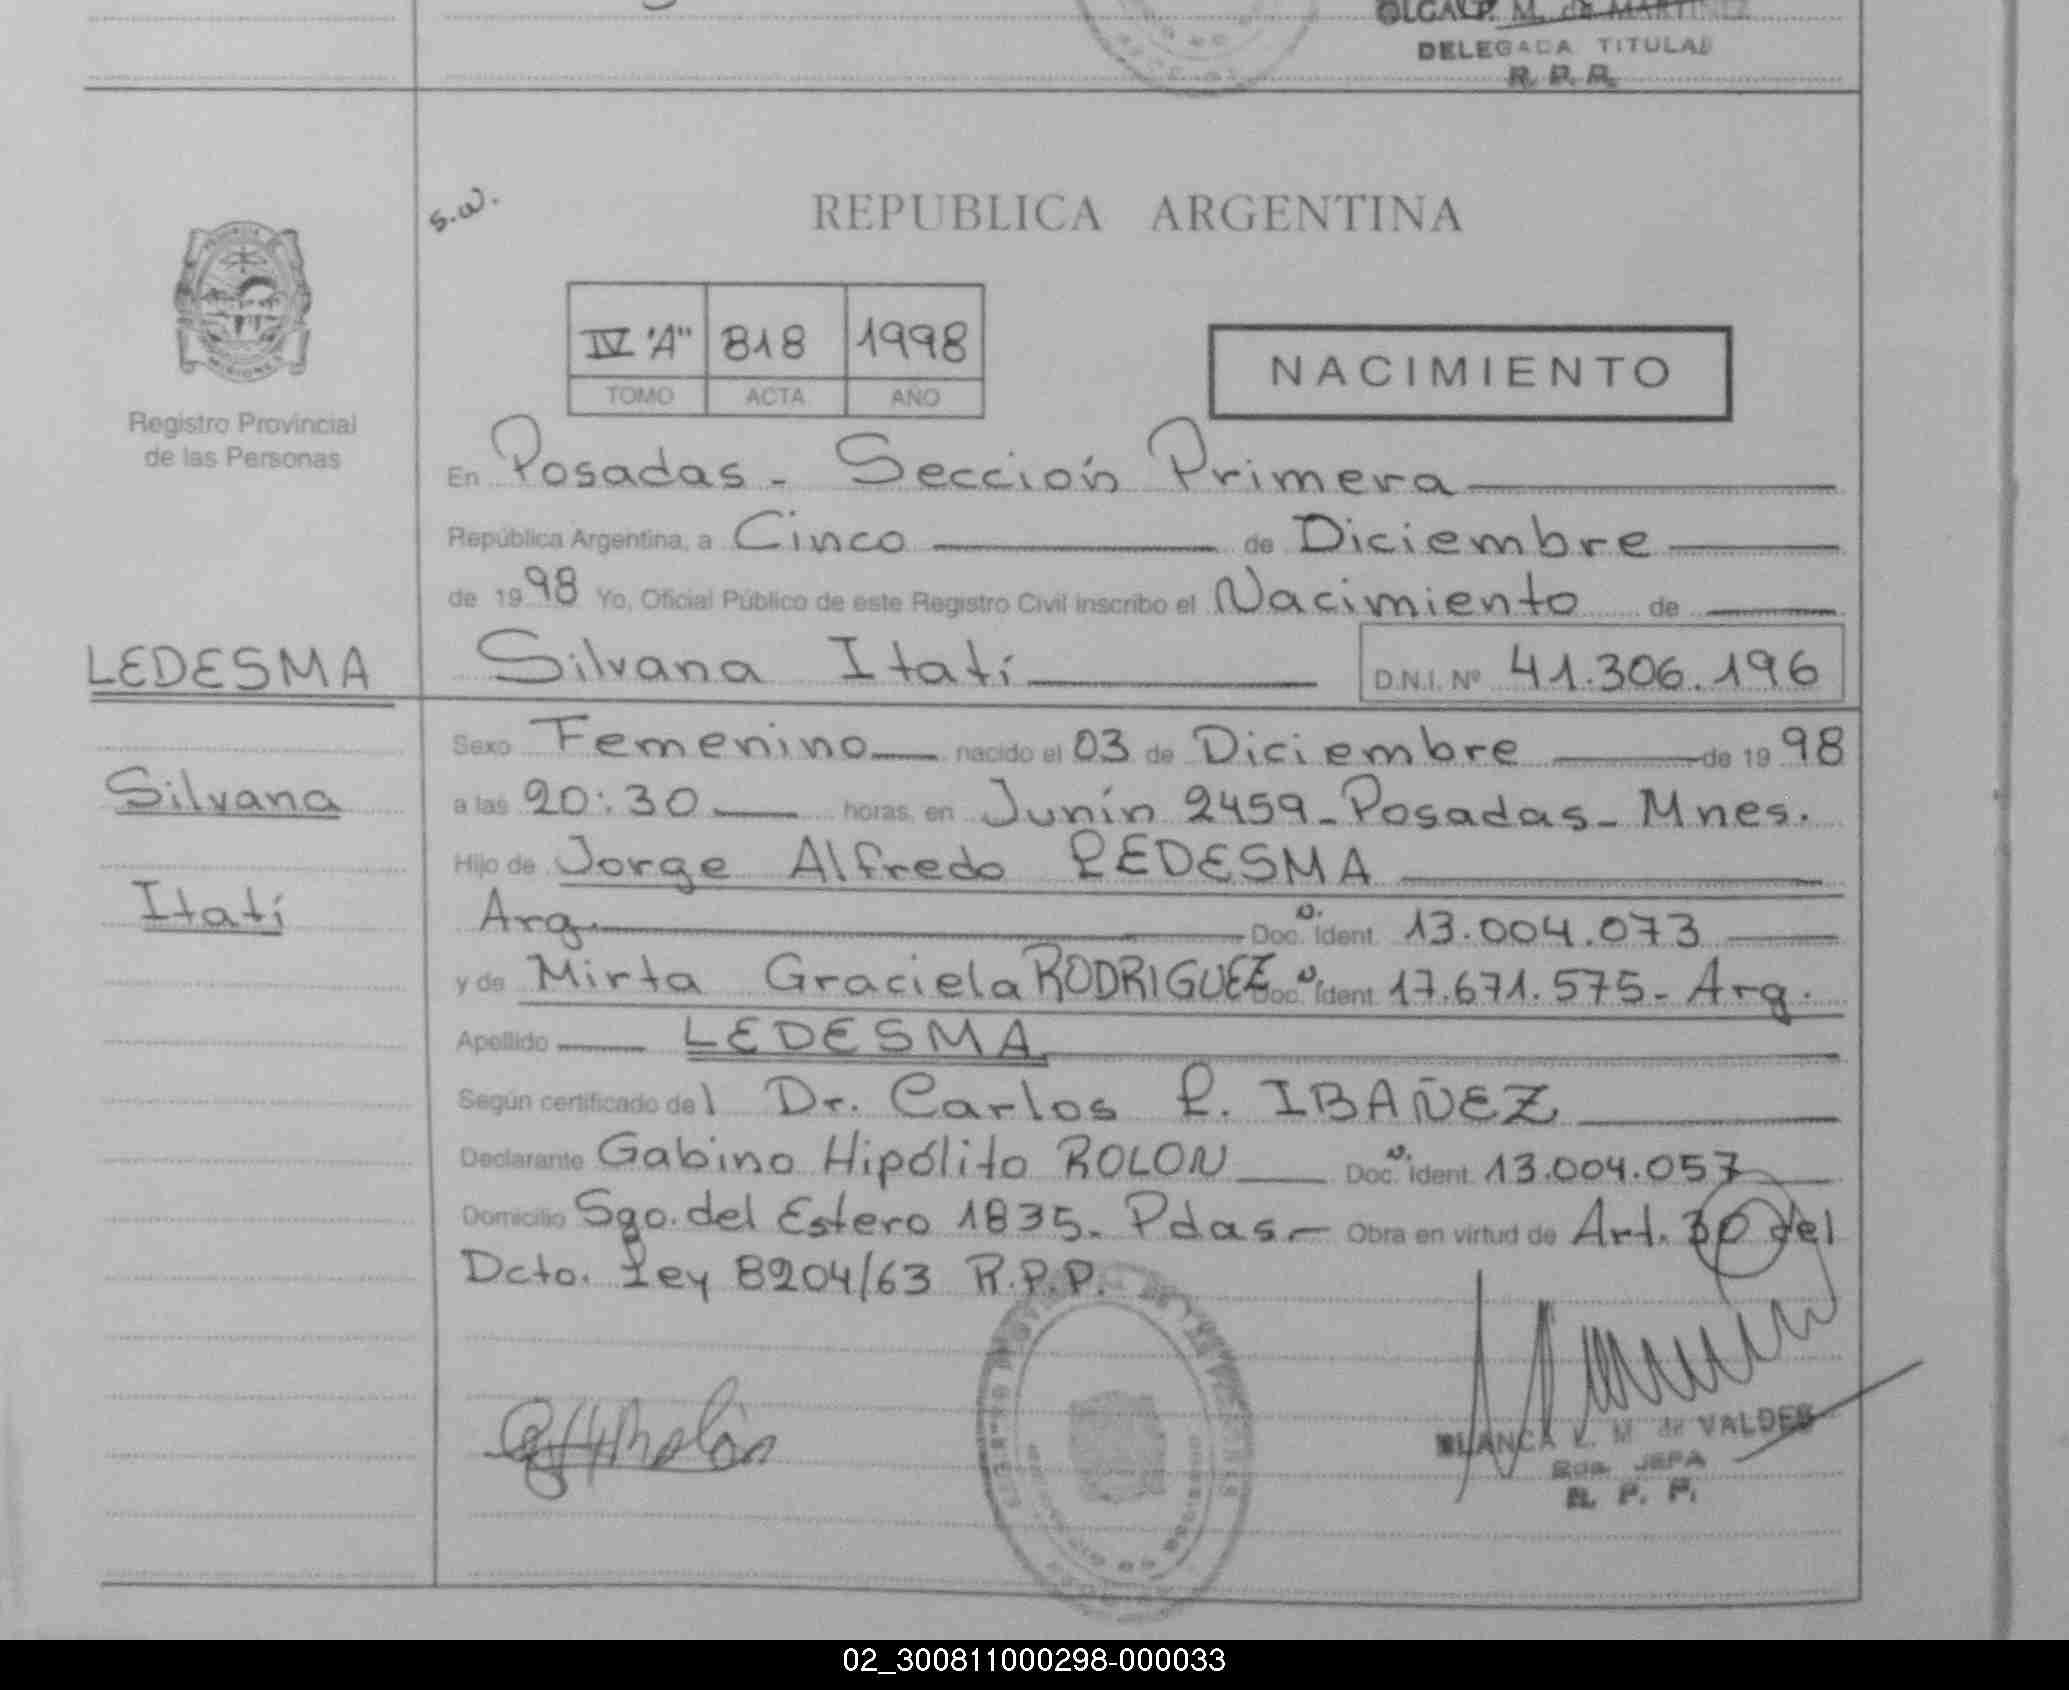 OLGA P. M. de MARTINEZ
DELEGADA TITULAR
R. P. P.
s.w.
REPUBLICA ARGENTINA
IV "A" 818 1998
TOMO ACTA AÑO
NACIMIENTO
Registro Provincial
de las Personas
En Posadas - Sección Primera
República Argentina, a Cinco de Diciembre
de 1998 Yo, Oficial Público de este Registro Civil inscribo el Nacimiento de
LEDESMA Silvana Itatí D.N.I. Nº 41.306.196
Sexo Femenino nacido el 03 de Diciembre de 1998
Silvana a las 20:30 horas, en Junín 2459 - Posadas - Mnes.
Hijo de Jorge Alfredo LEDESMA
Itatí Arg. Doc. Ident. 13.004.073
y de Mirta Graciela RODRIGUEZ Doc. Ident. 17.671.575 - Arg.
Apellido LEDESMA
Según certificado del Dr. Carlos L. IBAÑEZ
Declarante Gabino Hipólito ROLON Doc. Ident. 13.004.057
Domicilio Sgo. del Estero 1835 - Pdas. - Obra en virtud de Art. 30 del
Dcto. Ley 8204/63 R.P.P.
BLANCA L. M. de VALDES
JEFA
R. P. P.
02_300811000298-000033